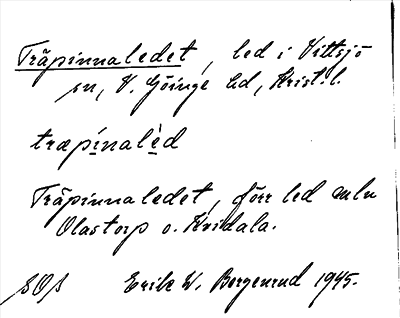 Träpinnaledet, led i Vittsjö
sn, V. Göinge hd, Krist. l.
træpínalèd
Träpinnaledet, förr led mln
Olastorp o. Kvidala.
Erik W. Borgenrud 1945.